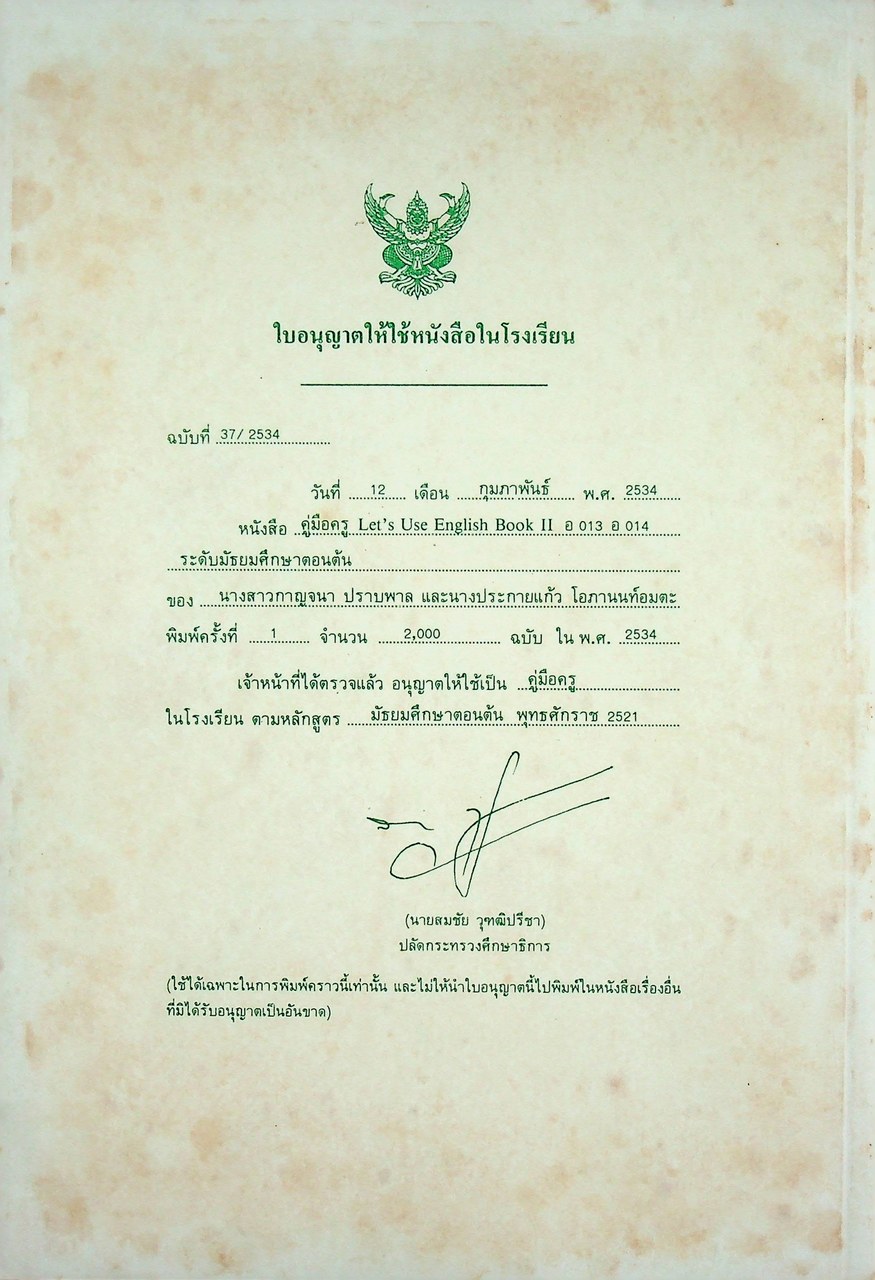 ใบอนุญาตให้ใช้หนังสือในโรงเรียน
ฉบับที่ 37/ 2534
วันที่ 12 เดือน กุมภาพันธ์ พ.ศ. 2534
หนังสือ คู่มือครู Let's Use English Book II อ 013 อ 014
ระดับมัธยมศึกษาตอนต้น
ของ นางสาวกาญจนา ปราบพาล และนางประกายแก้ว โอภานนท์อมตะ
พิมพ์ครั้งที่ 1 จำนวน 2,000 ฉบับ ใน พ.ศ. 2534
เจ้าหน้าที่ได้ตรวจแล้ว อนุญาตให้ใช้เป็น คู่มือครู
ในโรงเรียน ตามหลักสูตร มัธยมศึกษาตอนต้น พุทธศักราช 2521
(นายสมชัย วุฑฒิปรีชา)
ปลัดกระทรวงศึกษาธิการ
(ใช้ได้เฉพาะในการพิมพ์คราวนี้เท่านั้น และไม่ให้นำใบอนุญาตนี้ไปพิมพ์ในหนังสือเรื่องอื่น
ที่มิได้รับอนุญาตเป็นอันขาด)